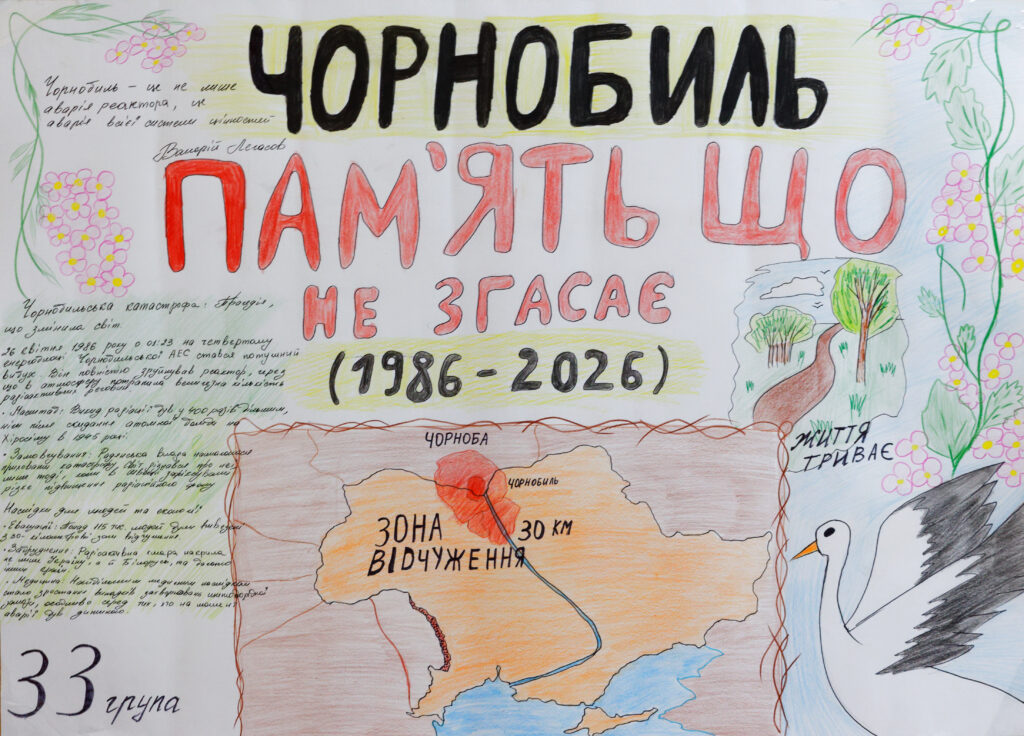 ЧОРНОБИЛЬ
Чорнобиль – це не лише
аварія реактора, це
аварія всієї системи цінностей
Валерій Легасов
ПАМ'ЯТЬ ЩО
НЕ ЗГАСАЄ
(1986 - 2026)
Чорнобильська катастрофа: Трагедія,
що змінила світ.
26 квітня 1986 року о 01:23 на четвертому
енергоблоці Чорнобильської АЕС стався потужний
вибух. Він повністю зруйнував реактор, через
що в атмосферу потрапила величезна кількість
радіоактивних речовин
• Масштаб: Викид радіації був у 400 разів більшим,
ніж після скидання атомної бомби на
Хіросіму в 1945 році.
• Замовчування: Радянська влада намагалася
приховати катастрофу. Світ дізнався про неї
лише тоді, коли в Швеції зафіксували
різке підвищення радіаційного фону
Наслідки для людей та екології
• Евакуація: Понад 115 тис. людей було вивезено
з 30-кілометрової зони відчуження.
• Забруднення: Радіоактивна хмара накрила
не лише Україну, а й Білорусь, та багато
інших країн
• Медицина: Найбільшим медичним наслідком
стало зростання випадків захворювань щитоподібної
залози, особливо серед тих, хто на момент
аварії був дитиною.
33 група
ЖИТТЯ
ТРИВАЄ
ЧОРНОБА
ЧОРНОБИЛЬ
ЗОНА
ВІДЧУЖЕННЯ
30 КМ